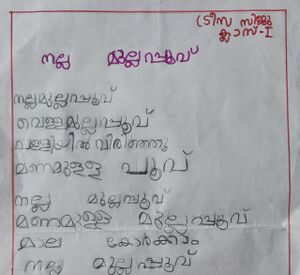 (ടീസ സിജു
ക്ലാസ്-I
നല്ല മുല്ലപ്പൂവ്
നല്ലമുല്ലപ്പൂവ്
വെള്ളമുല്ലപ്പൂവ്
വള്ളിയിൽ വിരിഞ്ഞു
മണമുള്ള പൂവ്
നല്ല മുല്ലപ്പൂവ്
മണമുള്ള മുല്ലപ്പൂവ്
മാല കോർക്കാം
നല്ല മുല്ലപ്പൂവ്